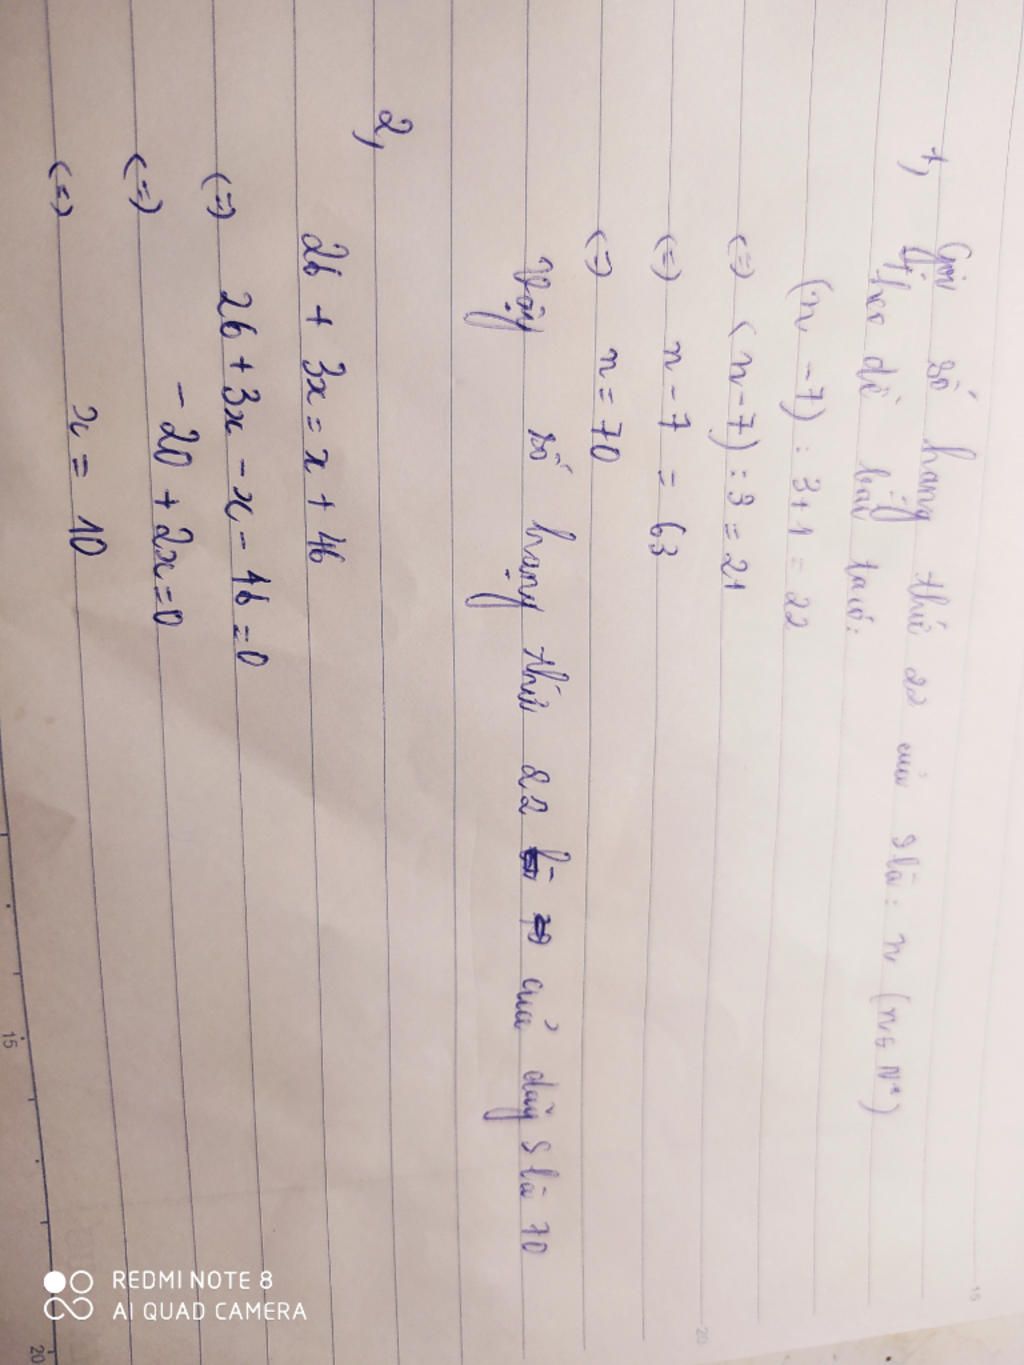 1, Gọi số hạng thứ 22 của S là: n (n ∈ N*)
Theo đề bài ta có:
(n - 7) : 3 + 1 = 22
(=) (n - 7) : 3 = 21
(=) n - 7 = 63
(=) n = 70
Vậy số hạng thứ 22 của dãy S là 70
2,
26 + 3x = x + 46
(=) 26 + 3x - x - 46 = 0
(=) - 20 + 2x = 0
(=) x = 10
REDMI NOTE 8
AI QUAD CAMERA
15
20
15
20